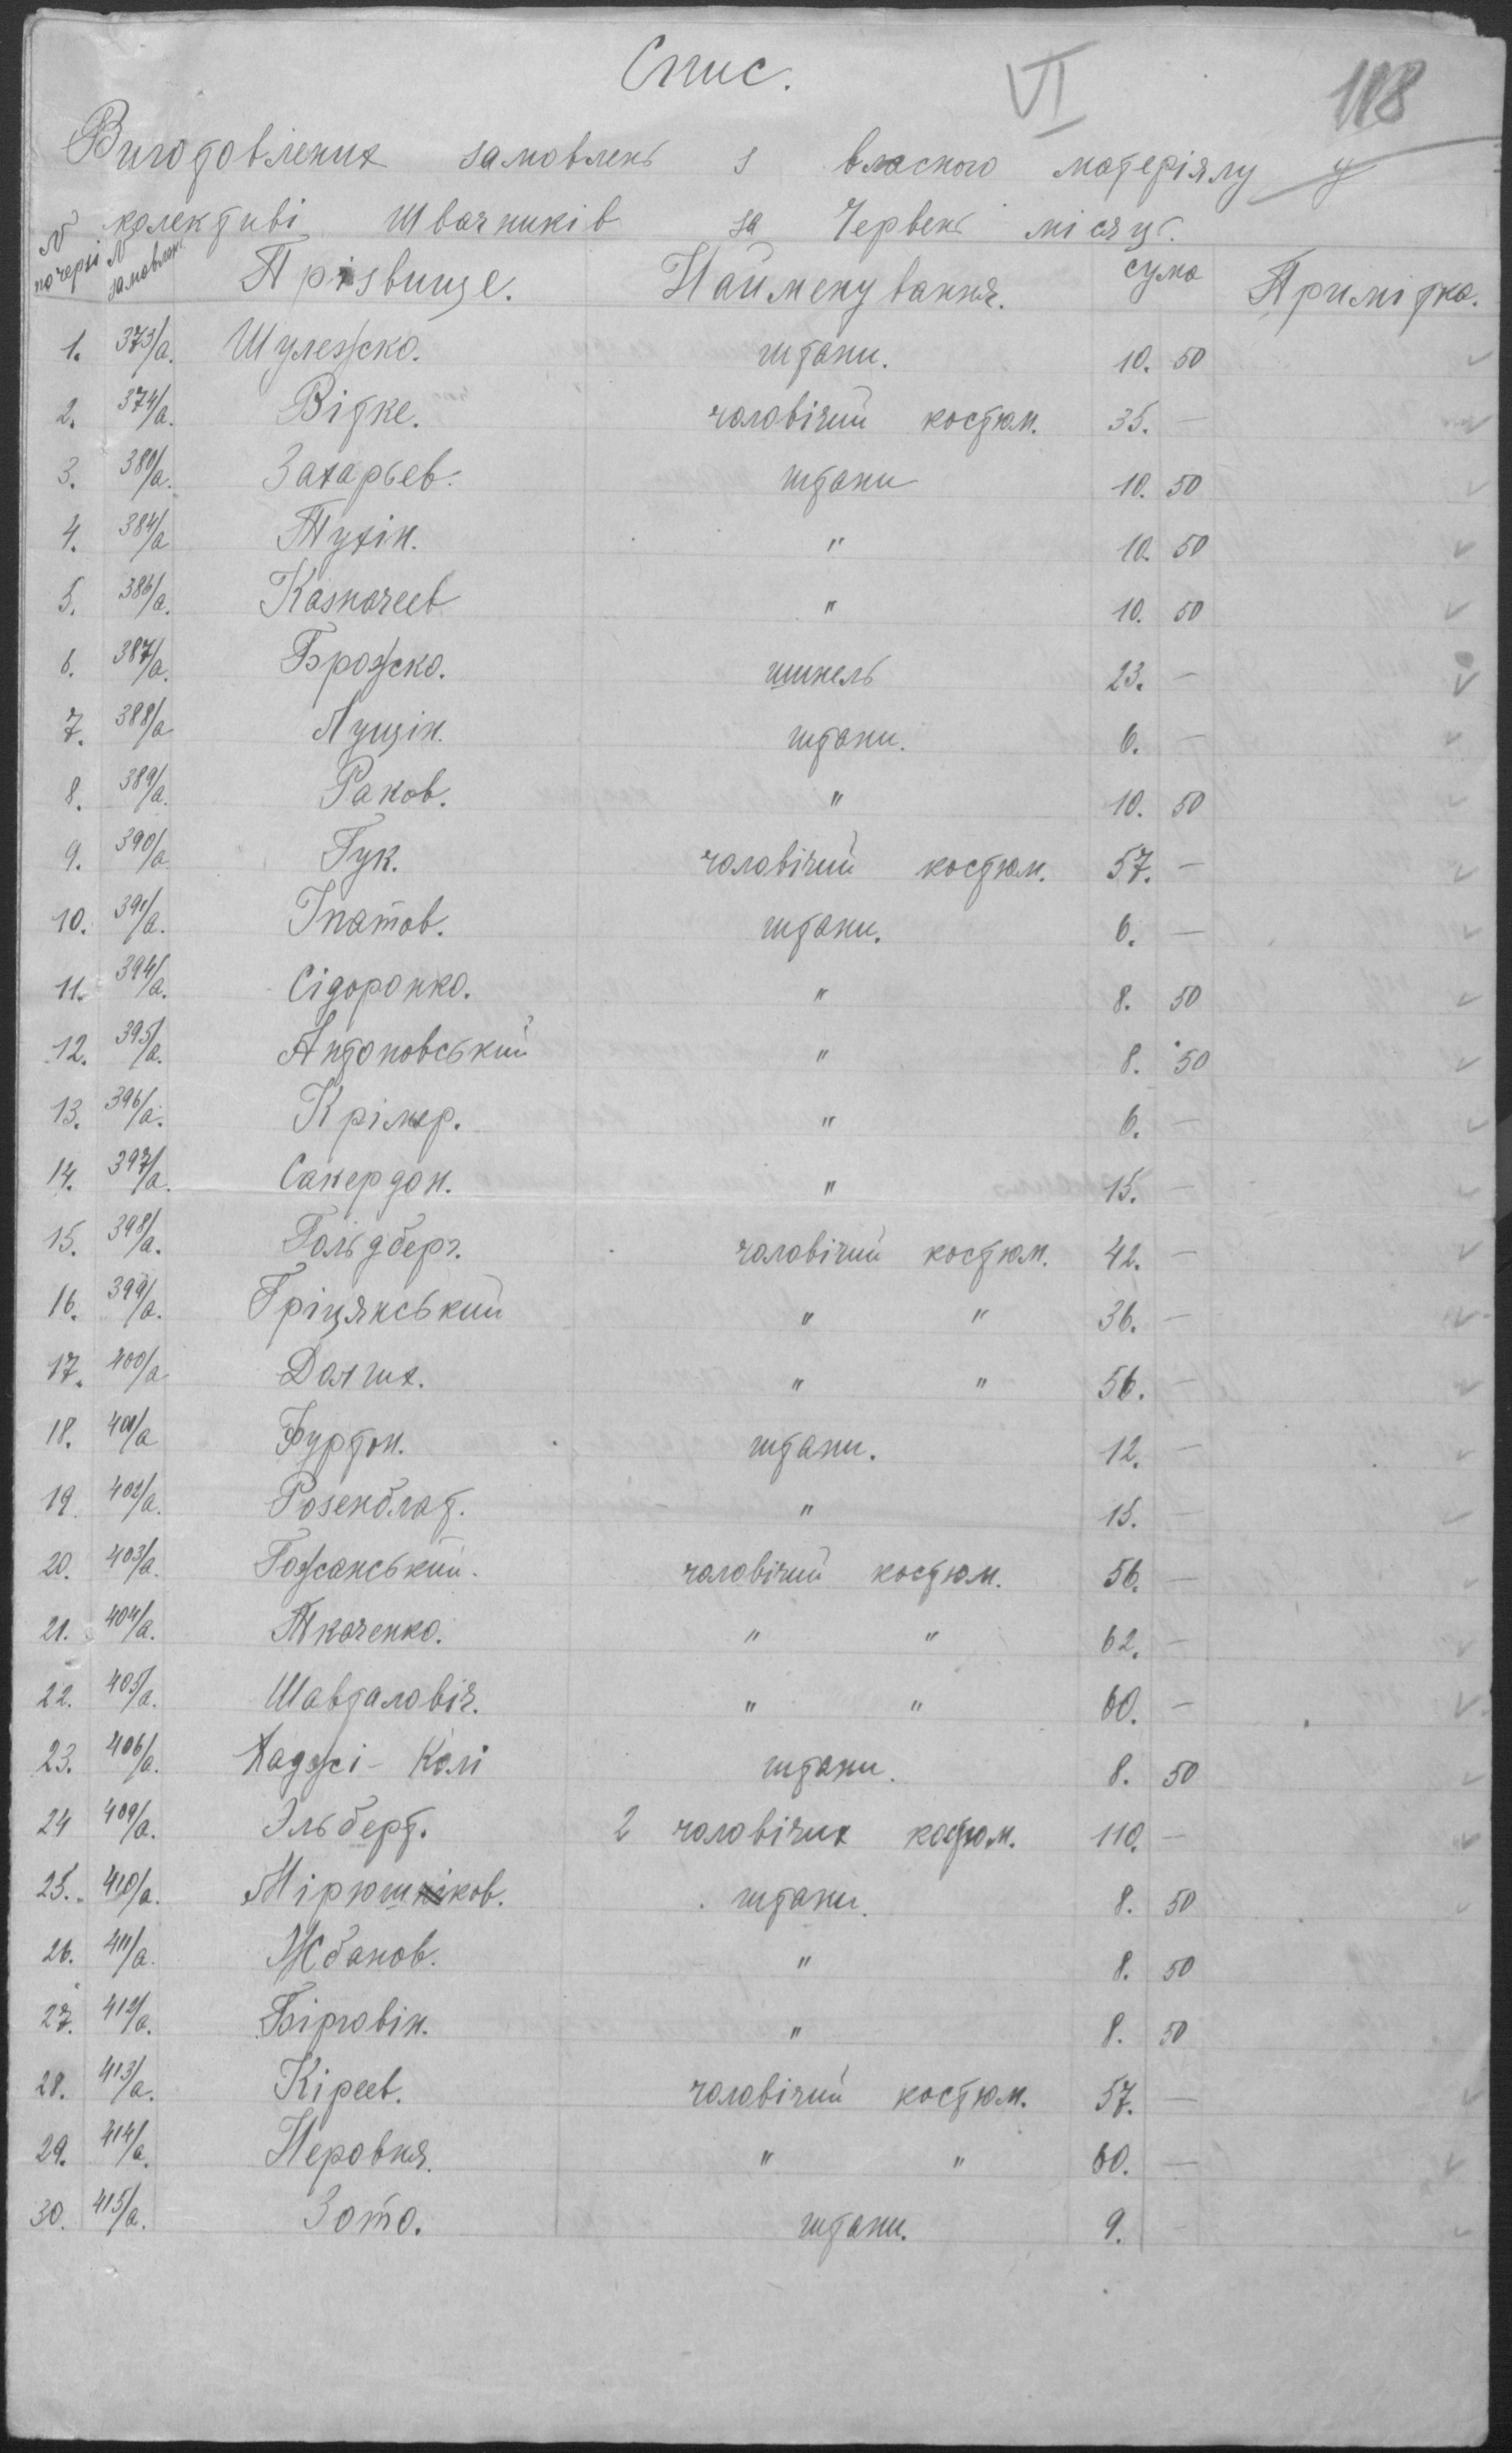 Спис.
VI
118
Виготовлених замовлень з власного матеріялу у
колективі Швачників за Червень місяць.
№ по черзі № замовлен. Прізвище. Найменування. сума Примітка.
1. 373/а. Шулежко. штани. 10. 50
2. 374/а. Вітке. чоловічий костюм. 35. —
3. 380/а. Захарьев. штани 10. 50
4. 384/а Тухін. " 10. 50
5. 386/а. Казначеев " 10. 50
6. 387/а. Брожко. шинель 23. —
7. 388/а Лущін. штани. 6. —
8. 389/а. Раков. " 10. 50
9. 390/а Гук. чоловічий костюм. 57. —
10. 391/а. Гнатов. штани. 6. —
11. 394/а. Сідоронко. " 8. 50
12. 395/а. Антоновський " 8. 50
13. 396/а. Крімер. " 6. —
14. 397/а. Сакердон. " 15. —
15. 398/а. Гольдберг. чоловічий костюм. 42. —
16. 399/а. Гріцянський " " 36. —
17. 400/а Долгих. " " 56. —
18. 401/а Фуртон. штани. 12. —
19. 402/а. Розенблат. " 15. —
20. 403/а. Гожанський. чоловічий костюм. 56. —
21. 404/а. Ткаченко. " " 62. —
22. 405/а. Шавталовіч. " " 60. —
23. 406/а. Хаджі - Колі штани. 8. 50
24 409/а. Эльберт. 2 чоловічих костюм. 110. —
25. 410/а. Мірюшніков. штани. 8. 50
26. 411/а. Жбанов. " 8. 50
27. 412/а. Бірговін. " 8. 50
28. 413/а. Кіреев. чоловічий костюм. 57. —
29. 414/а. Неровня. " " 60. —
30. 415/а. Зото. штани. 9. —